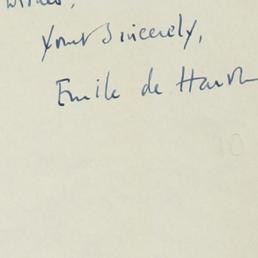 wishes,
Yours Sincerely,
Emile de